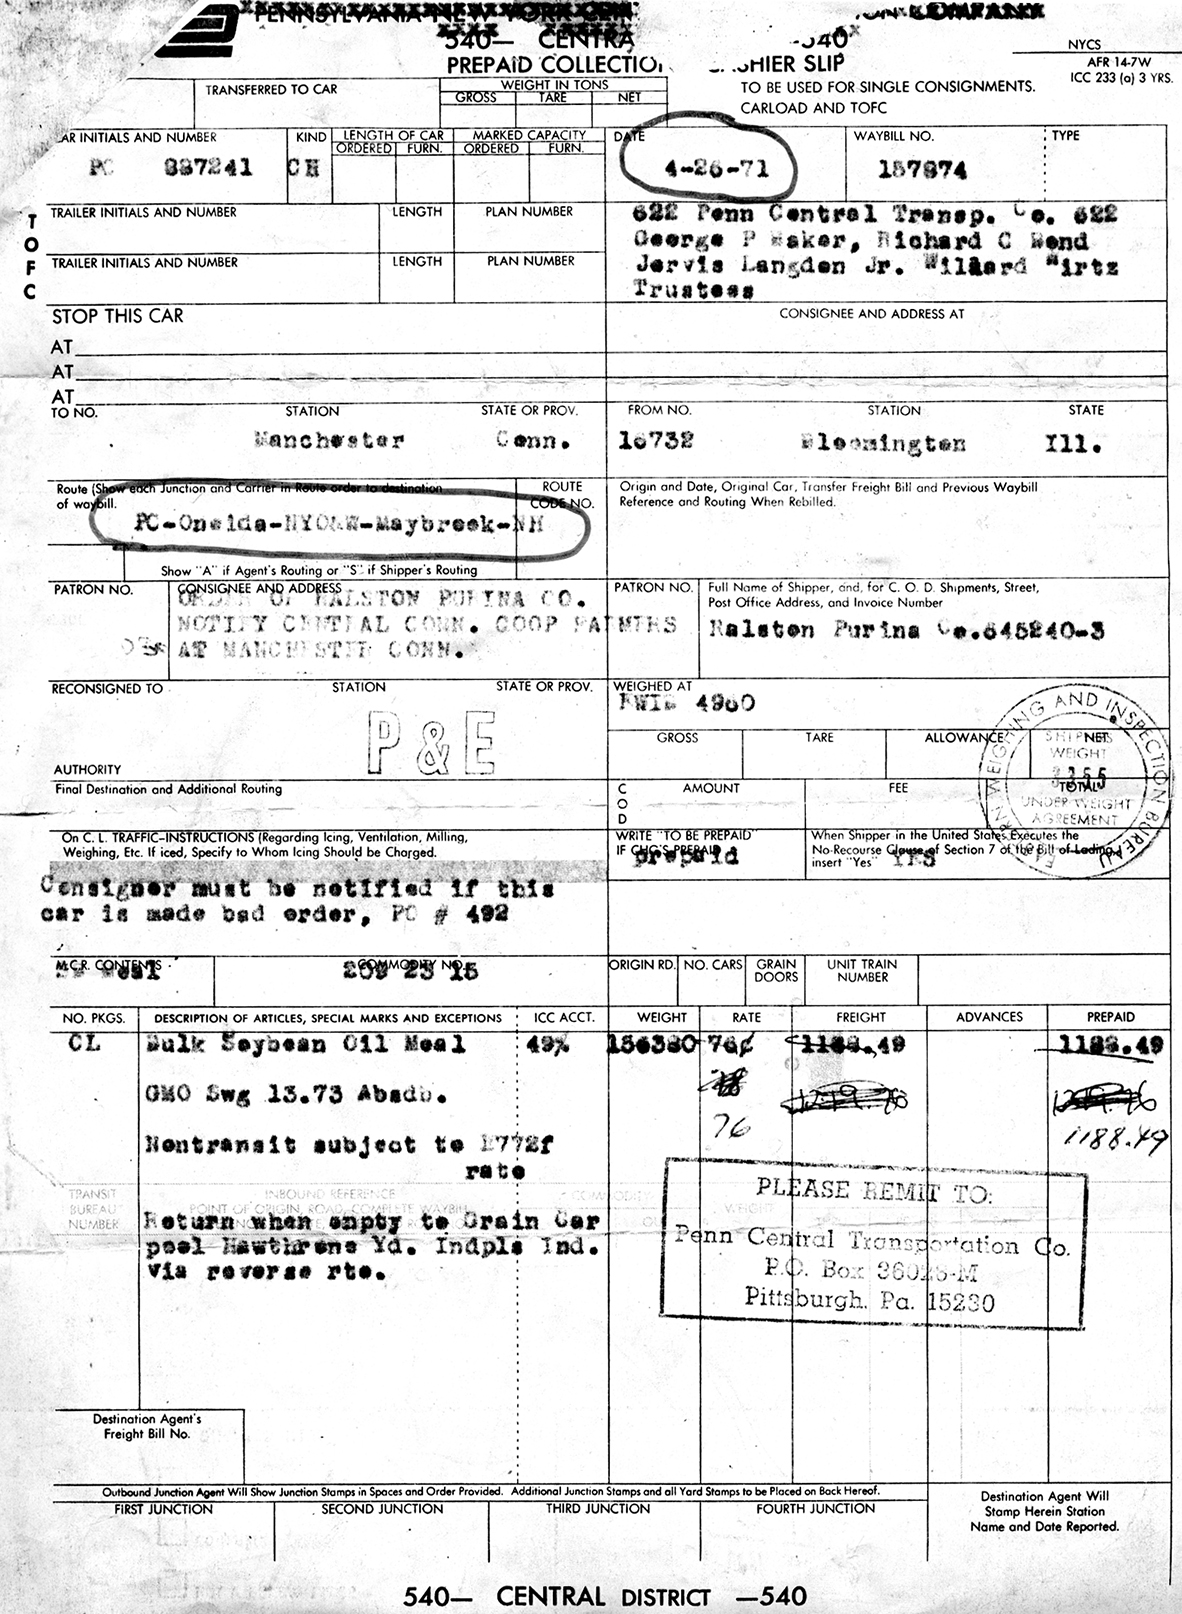 PENNSYLVANIA NEW YORK CEN
540— CENTRA —540
PREPAID COLLECTION CASHIER SLIP
NYCS
AFR 14-7W
ICC 233 (a) 3 YRS.
TO BE USED FOR SINGLE CONSIGNMENTS.
CARLOAD AND TOFC
TRANSFERRED TO CAR
WEIGHT IN TONS
GROSS TARE NET
CAR INITIALS AND NUMBER KIND LENGTH OF CAR MARKED CAPACITY DATE WAYBILL NO. TYPE
ORDERED FURN. ORDERED FURN.
PC 887241 CH 4-26-71 157874
TOFC
TRAILER INITIALS AND NUMBER LENGTH PLAN NUMBER
TRAILER INITIALS AND NUMBER LENGTH PLAN NUMBER
622 Penn Central Transp. Co. 622
George P Baker, Richard C Bond
Jervis Langden Jr. Willard Wirtz
Trustees
STOP THIS CAR
CONSIGNEE AND ADDRESS AT
AT
AT
AT
TO NO. STATION STATE OR PROV. FROM NO. STATION STATE
Manchester Conn. 16732 Bloomington Ill.
Route (Show each Junction and Carrier in Route order to destination
of waybill. ROUTE
CODE NO.
PC-Oneida-NYO&W-Maybrook-NH
Show "A" if Agent's Routing or "S" if Shipper's Routing
Origin and Date, Original Car, Transfer Freight Bill and Previous Waybill
Reference and Routing When Rebilled.
PATRON NO. CONSIGNEE AND ADDRESS
ORDER OF RALSTON PURINA CO.
NOTIFY CENTRAL CONN. COOP FARMERS
AT MANCHESTER CONN.
PATRON NO. Full Name of Shipper, and, for C. O. D. Shipments, Street,
Post Office Address, and Invoice Number
Ralston Purina Co.645240-3
RECONSIGNED TO STATION STATE OR PROV.
P & E
AUTHORITY
WEIGHED AT
GROSS TARE ALLOWANCE NET
TOTAL
EASTERN WEIGHING AND INSPECTION BUREAU
SHIPPERS
WEIGHT
3355
UNDER WEIGHT
AGREEMENT
Final Destination and Additional Routing
COD AMOUNT FEE
On C. L. TRAFFIC—INSTRUCTIONS (Regarding Icing, Ventilation, Milling,
Weighing, Etc. If iced, Specify to Whom Icing Should be Charged.
WRITE "TO BE PREPAID"
IF CHG'S PREPAID
prepaid
When Shipper in the United States Executes the
No-Recourse Clause of Section 7 of the Bill of Lading,
insert "Yes" YES
Consignor must be notified if this
car is made bad order, PC # 492
M.C.R. CONTENTS COMMODITY NO.
Meal 209 23 15
ORIGIN RD. NO. CARS GRAIN
DOORS UNIT TRAIN
NUMBER
NO. PKGS. DESCRIPTION OF ARTICLES, SPECIAL MARKS AND EXCEPTIONS ICC ACCT. WEIGHT RATE FREIGHT ADVANCES PREPAID
CL Bulk Soybean Oil Meal 49% 156380 76¢ 1188.49 1188.49
GMO Swg 13.73 Absdb. 1219.76 1219.76
76 1188.49
Nontransit subject to E772f
rate
TRANSIT
BUREAU
NUMBER
INBOUND REFERENCE
POINT OF ORIGIN, ROAD, COMPLETE WAYBILL
COMMODITY
WEIGHT
Return when empty to Grain Car
pool Hawthrone Yd. Indpls Ind.
Via reverse rte.
PLEASE REMIT TO:
Penn Central Transportation Co.
P.O. Box 36028-M
Pittsburgh, Pa. 15230
Destination Agent's
Freight Bill No.
Outbound Junction Agent Will Show Junction Stamps in Spaces and Order Provided. Additional Junction Stamps and all Yard Stamps to be Placed on Back Hereof.
FIRST JUNCTION SECOND JUNCTION THIRD JUNCTION FOURTH JUNCTION
Destination Agent Will
Stamp Herein Station
Name and Date Reported.
540— CENTRAL DISTRICT —540